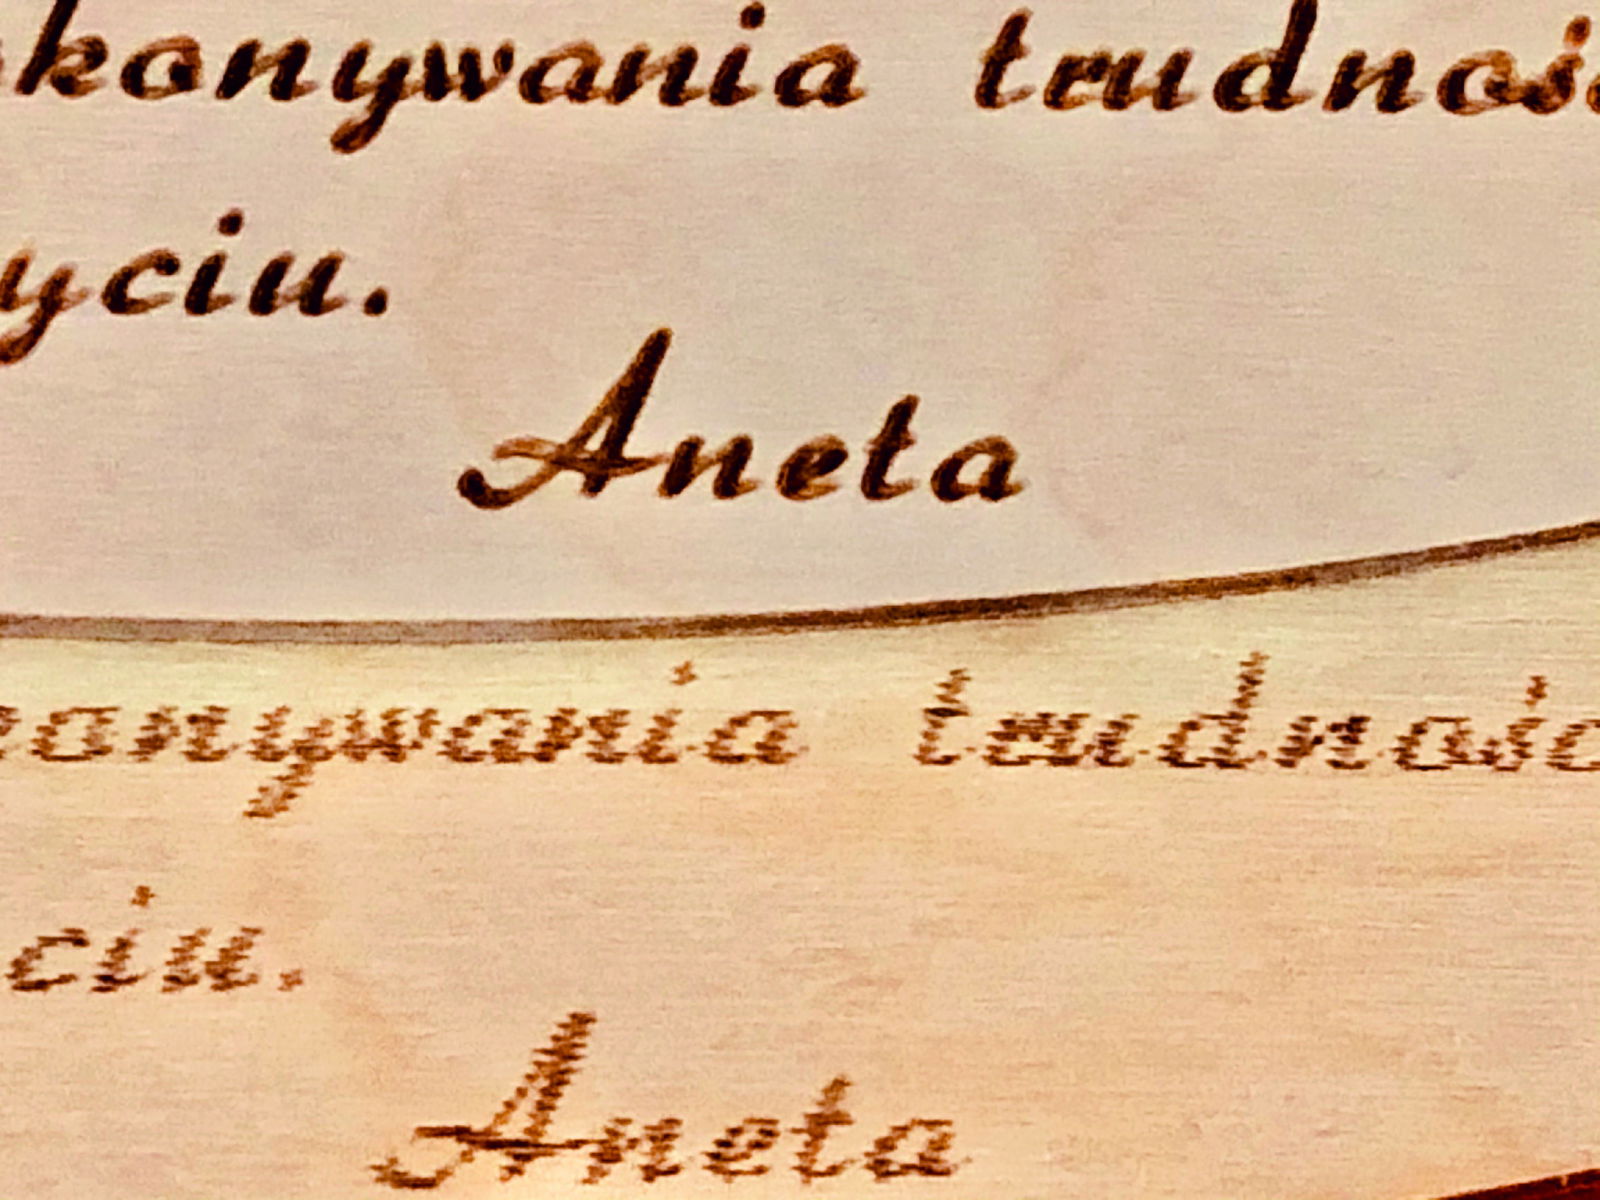 konywania trudnośc
yciu.
Aneta
onywania trudnośc
ciu.
Aneta